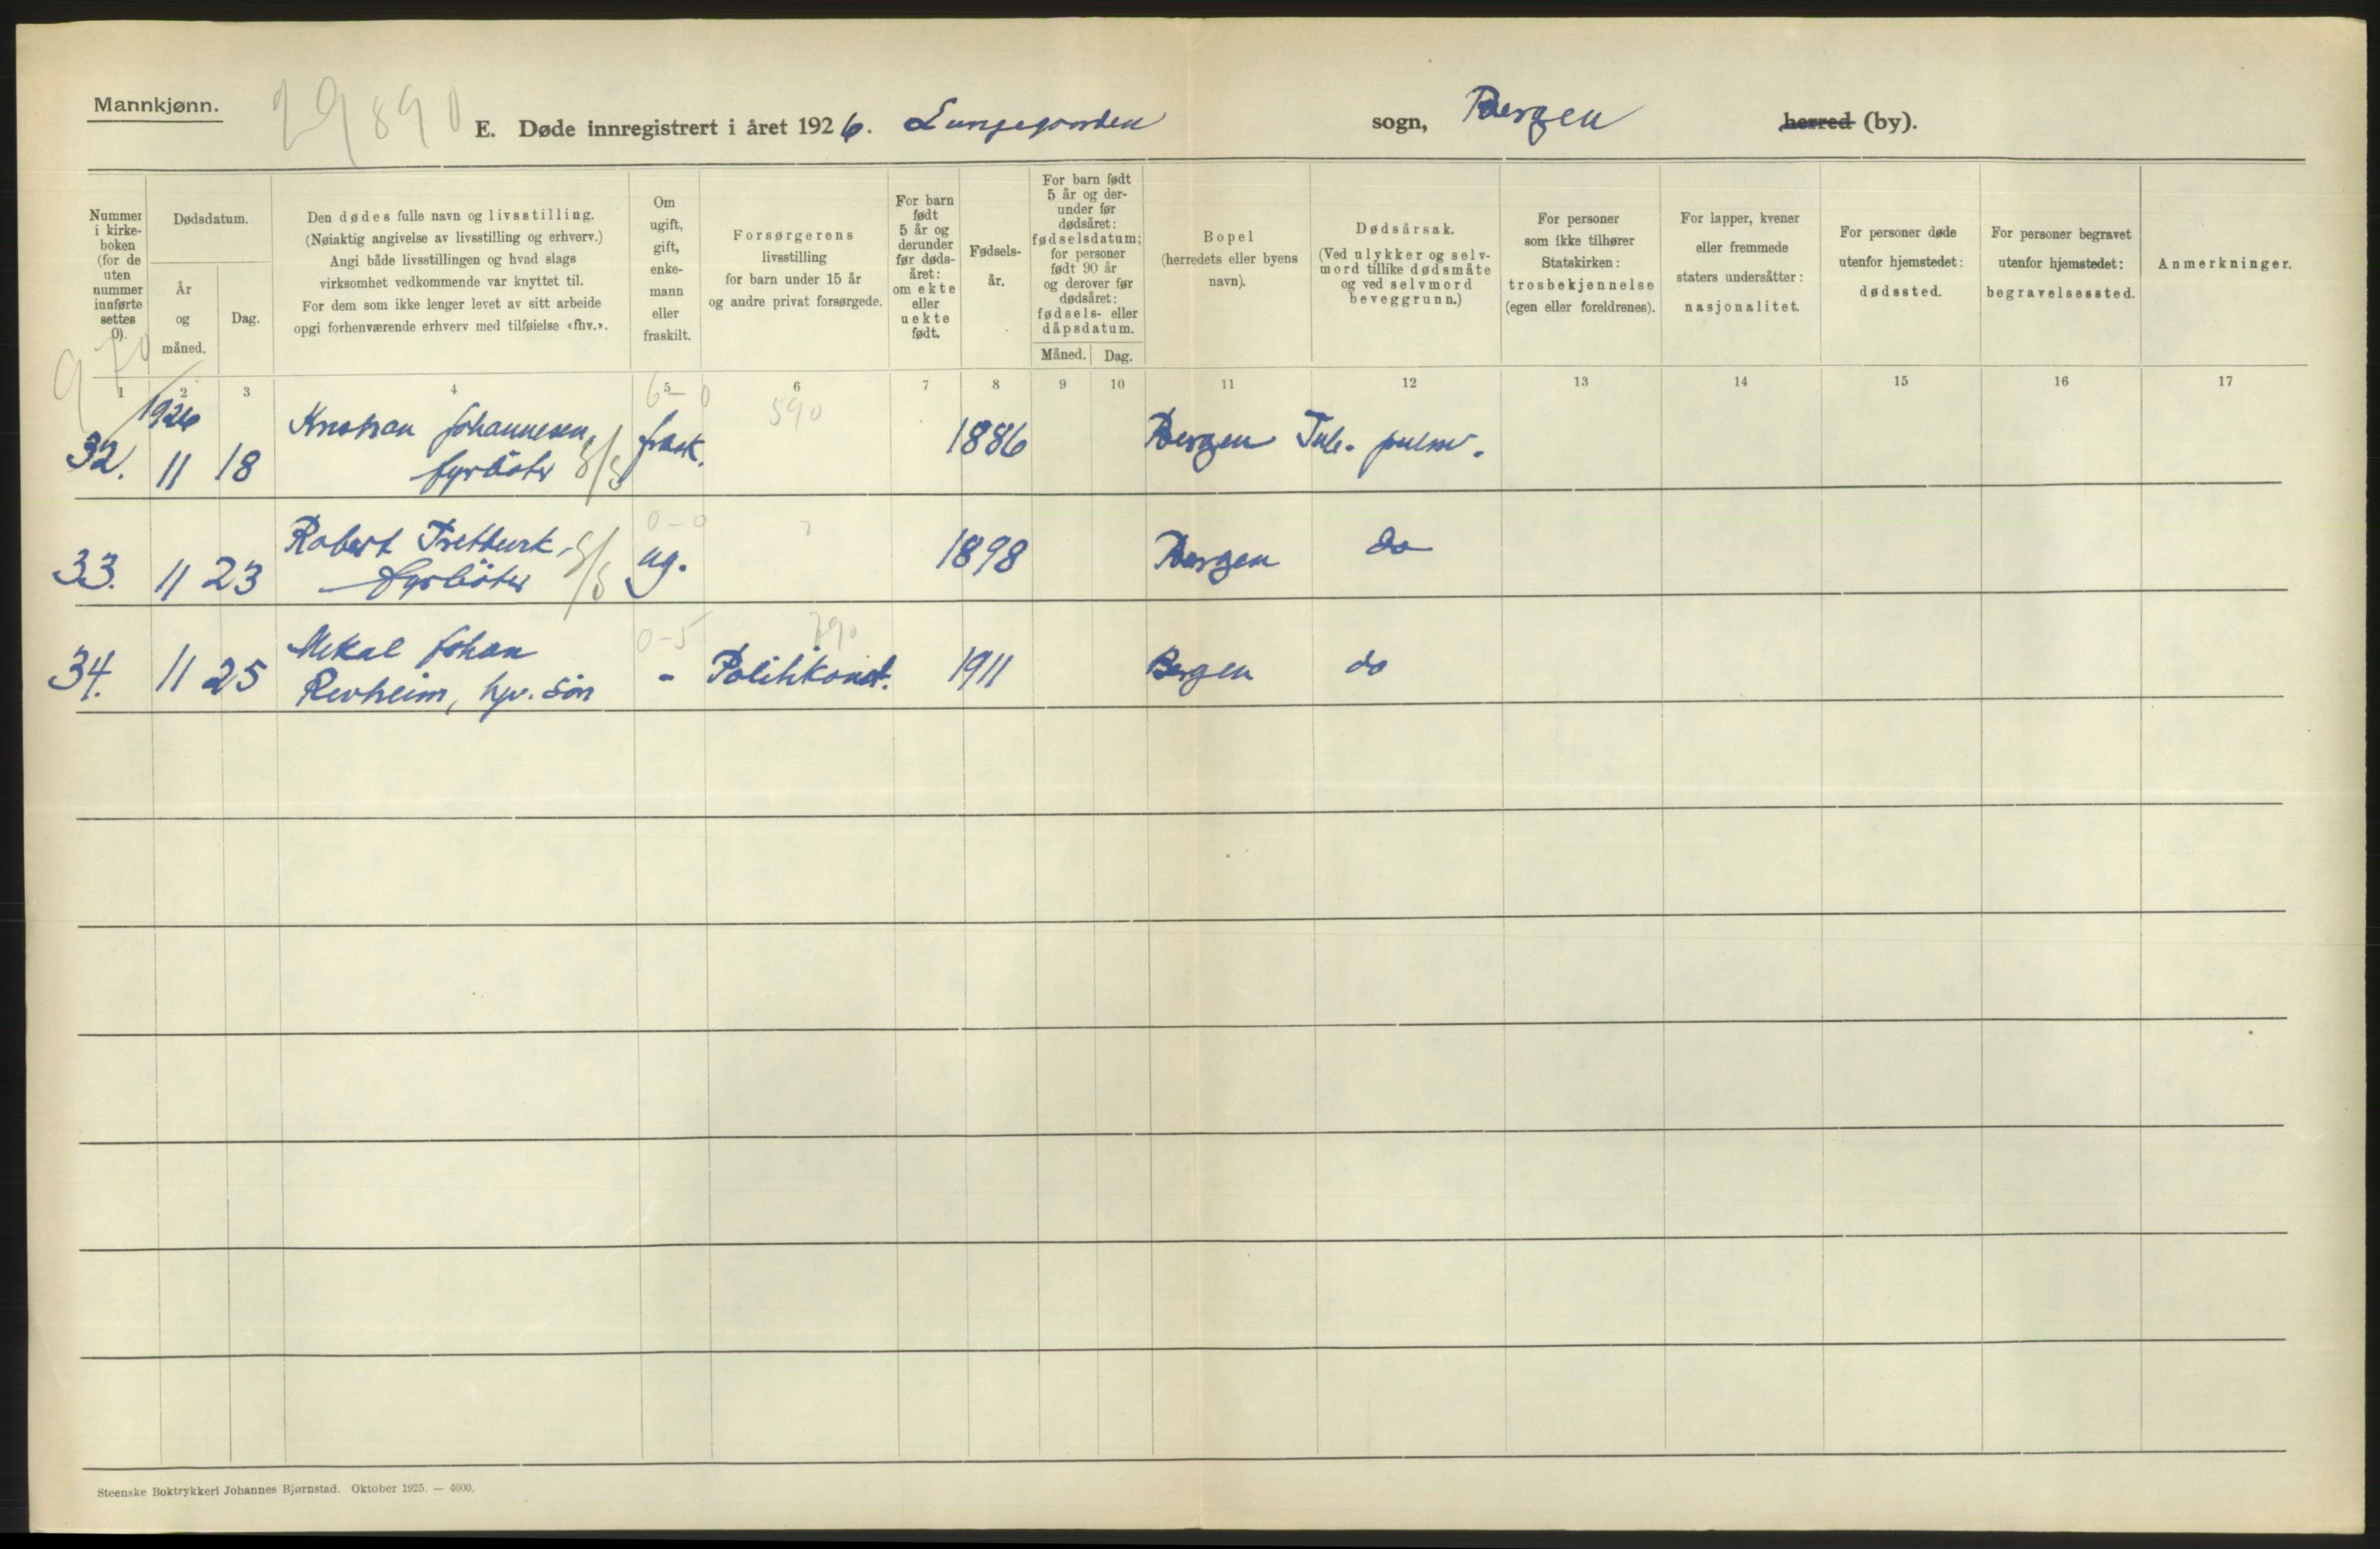 Mannkjønn.
29890
E. Døde innregistrert i året 1926. Lungegaarden sogn, Bergen herred (by).
Nummer i kirke-boken (for de uten nummer innførte settes 0).
Dødsdatum.
År og måned.
Dag.
Den dødes fulle navn og livsstilling.
(Nøiaktig angivelse av livsstilling og erhverv.)
Angi både livsstillingen og hvad slags
virksomhet vedkommende var knyttet til.
For dem som ikke lenger levet av sitt arbeide
opgi forhenværende erhverv med tilføielse «fhv.».
Om ugift, gift, enke-mann eller fraskilt.
Forsørgerens
livsstilling
for barn under 15 år
og andre privat forsørgede.
For barn født 5 år og derunder før døds-året: om ekte eller uekte født.
Fødsels-år.
For barn født 5 år og der-under før dødsåret: fødselsdatum; for personer født 90 år og derover før dødsåret: fødsels- eller dåpsdatum.
Måned. Dag.
Bopel
(herredets eller byens
navn).
Dødsårsak.
(Ved ulykker og selv-
mord tillike dødsmåte
og ved selvmord
beveggrunn.)
For personer
som ikke tilhører
Statskirken:
trosbekjennelse
(egen eller foreldrenes).
For lapper, kvener
eller fremmede
staters undersåtter:
nasjonalitet.
For personer døde
utenfor hjemstedet:
dødssted.
For personer begravet
utenfor hjemstedet:
begravelsessted.
Anmerkninger.
970
1 2 3 4 5 6 7 8 9 10 11 12 13 14 15 16 17
1926
6-0 590
32. 11 18 Kristian Johannesen, fyrbøter S/S frask. 1886 Bergen Tub. pulm.
0-0 ?
33. 11 23 Robert fyrbøter S/S ug. 1898 Bergen do
0-5 790
34. 11 25 Mekal Johan
Revheim, hjv. søn - Politikonst. 1911 Bergen do
Steenske Boktrykkeri Johannes Bjørnstad. Oktober 1925. — 4000.